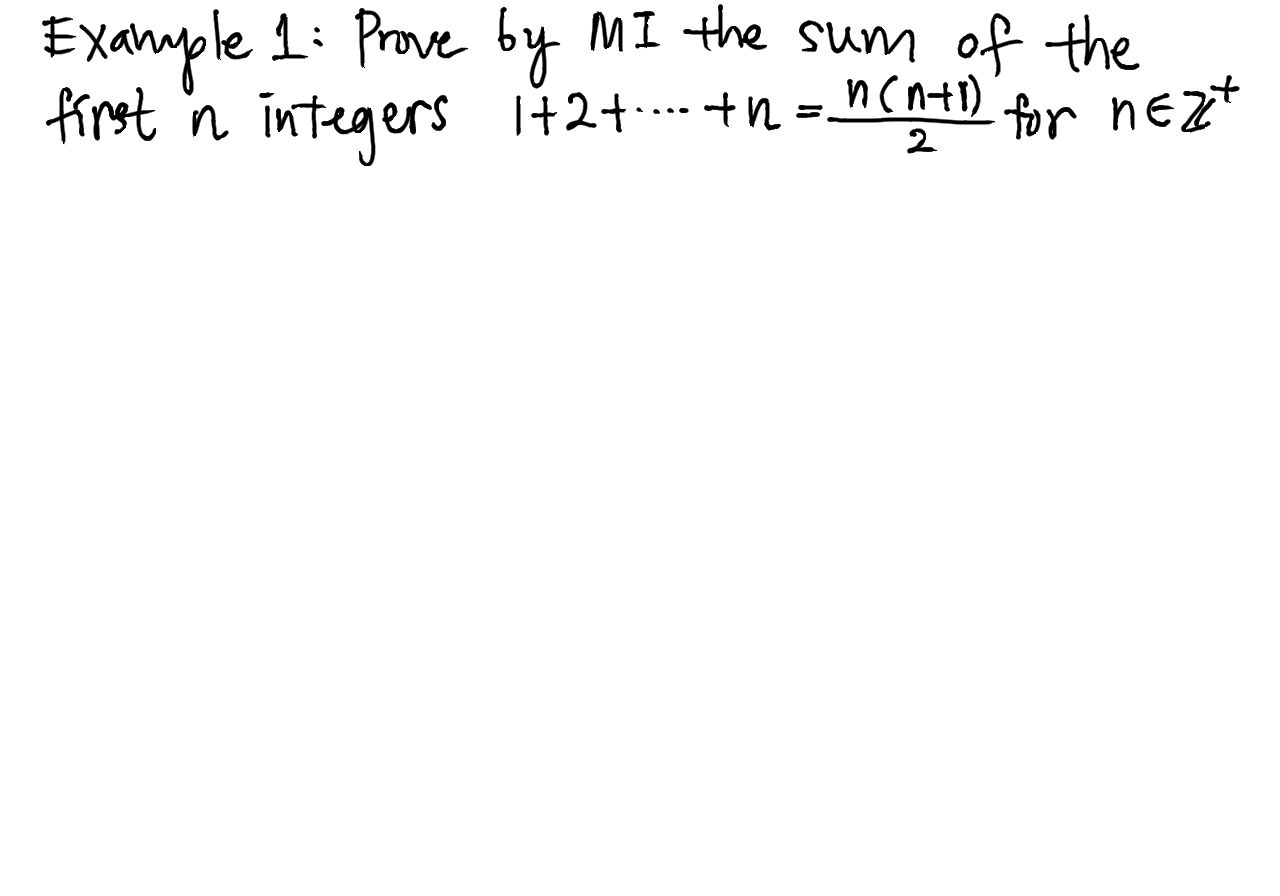 Example 1: Prove by MI the sum of the
first n integers 1+2+.....+n = n(n+1)/2 for n∈ℤ⁺